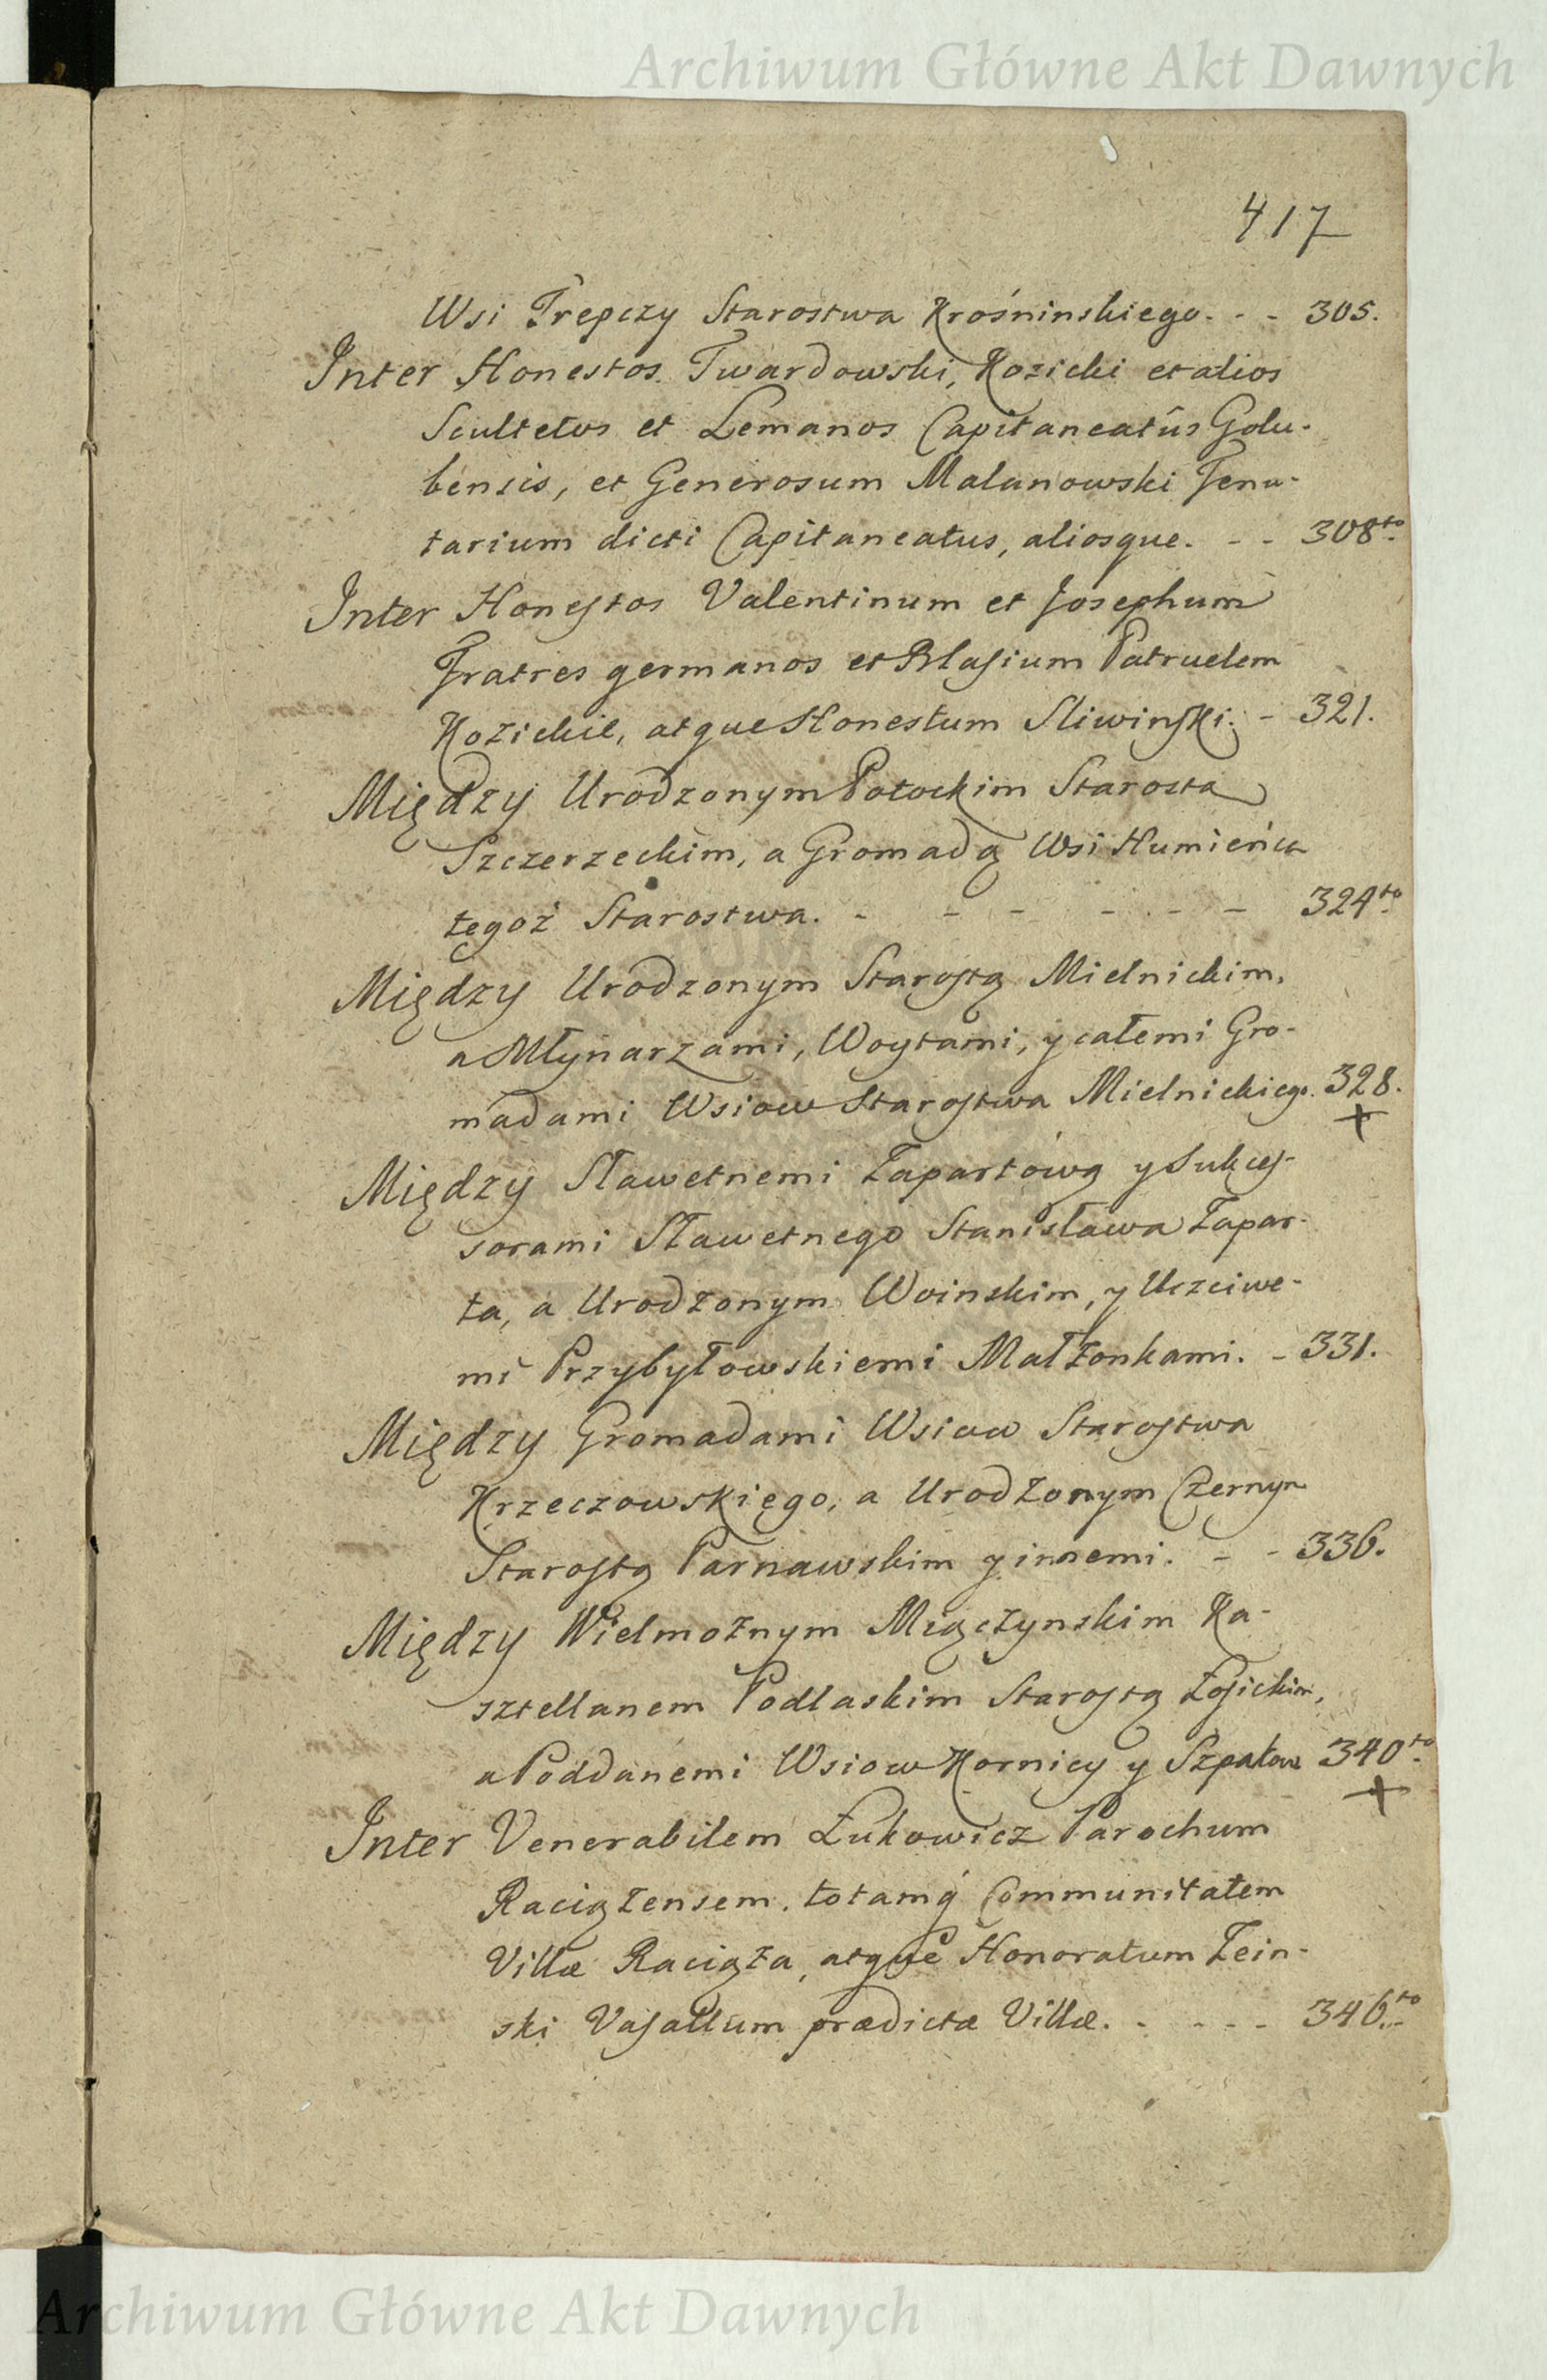 Archiwum Główne Akt Dawnych
417
Wsi Trepczy Starostwa Krośninskiego. - - 305.
Inter Honestos Twardowski, Kozicki et alios
Scultetos et Lemanos Capitaneatûs Golu-
bensis, et Generosum Malanowski Tenu-
tarium dicti Capitaneatus, aliosque. - - 308to
Inter Honestos Valentinum et Josephum
Fratres germanos et Blasium Patruelem
Kozickie, atque Honestum Sliwinski. - 321.
Między Urodzonym Potockim Starosta
Szczerzeckim, a Gromadą Wsi Humieńca
tegoż Starostwa. - - - - - - 324to
Między Urodzonym Starostą Mielnickim,
a Młynarzami, Woytami, y całemi Gro-
madami Wsiow Starostwa Mielnickiego. 328.
+
Między Sławetnemi Łapartówą y Sukces-
sorami Sławetnego Stanisława Łapar-
ta, a Urodzonym Woinskim, y Uczciwe-
mi Przybyłowskiemi Małżonkami. - 331.
Między Gromadami Wsiow Starostwa
Krzeczowskięgo, a Urodzonym Czernym
Starostą Parnawskim y innemi. - - 336.
Między Wielmożnym Miączynskim Ka-
sztellanem Podlaskim Starostą Łosickim,
a Poddanemi Wsiow Kornicy y Szpakow 340to
+
Inter Venerabilem Łukowicz Parochum
Raciążensem, totamq́ Communitatem
Villæ Raciąża, atque Honoratum Zein-
ski Vasallum prædictæ Villæ. - - - - 346to
Archiwum Główne Akt Dawnych